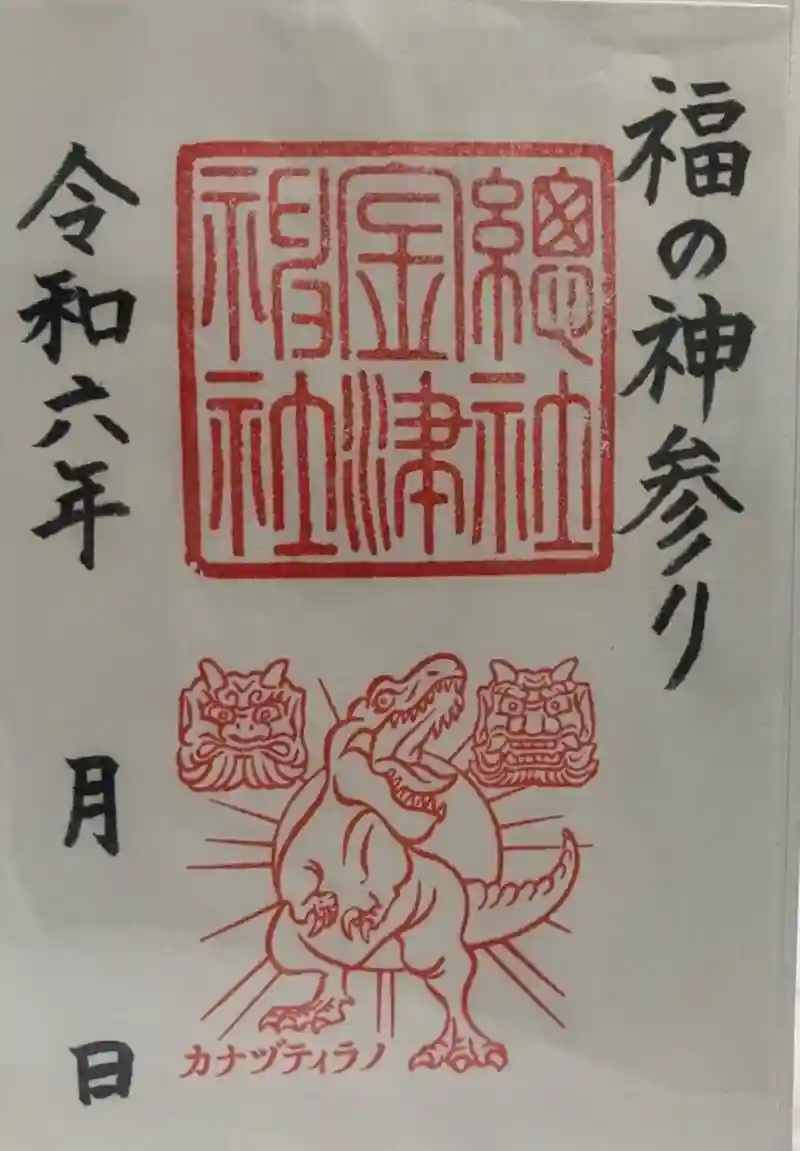 福の神参り
總社
金津
神社
カナヅティラノ
令和六年 月 日